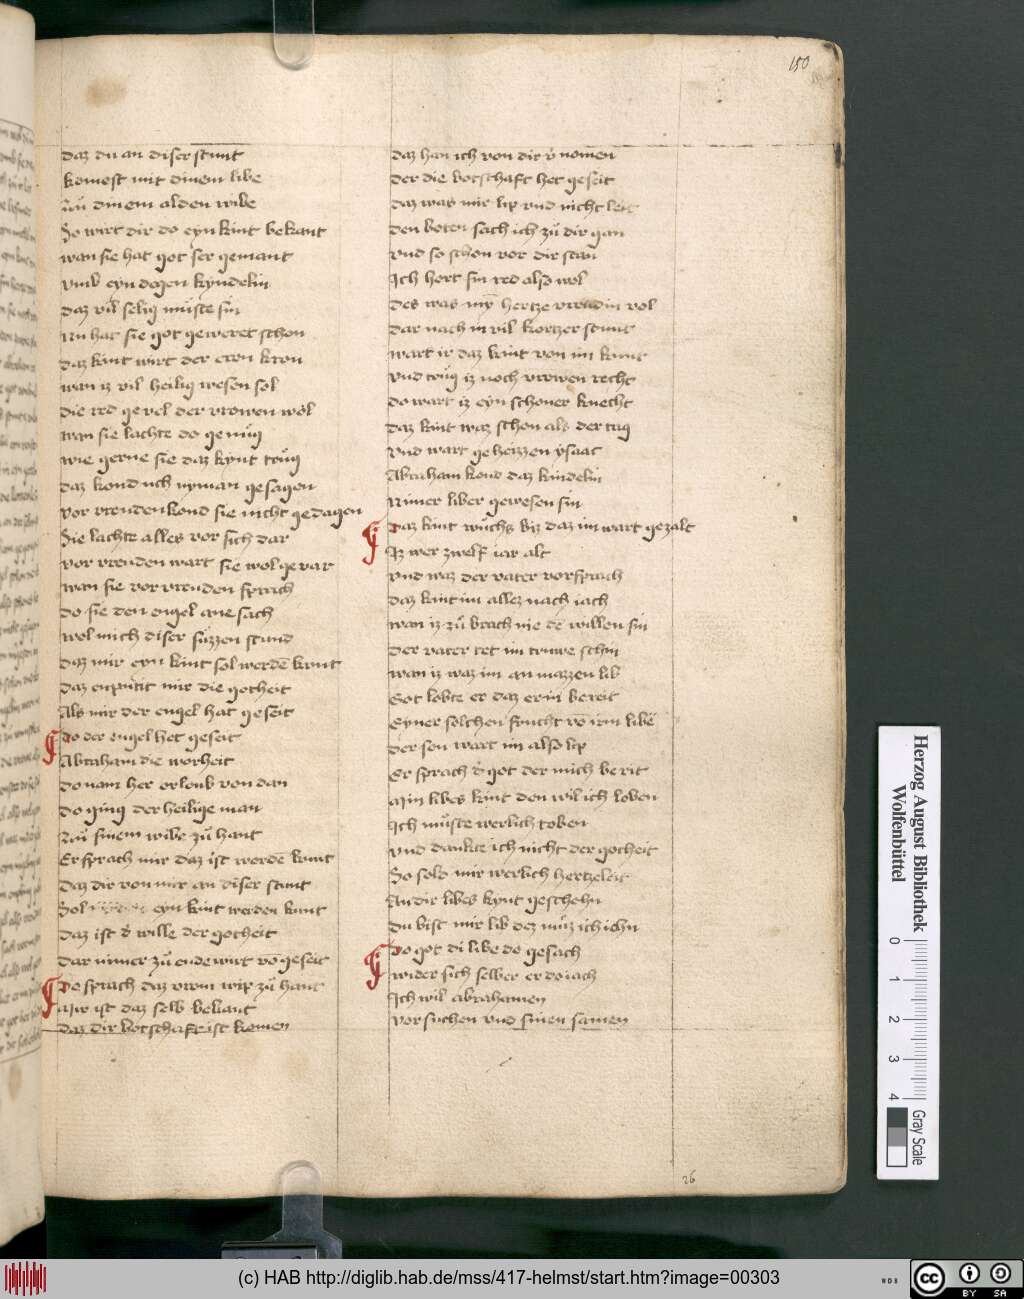 150
daz du an diser stunt
komest mit dinem libe
zů dinem alden wibe
So wirt dir do eyn kint bekant
wan sie hat got ser gemant
vmb eyn degen kyndelin
daz vil selig můste sin
nu hat sie got geweret schon
daz kint wirt der eren kron
wan iz vil heilig wesen sol
die red gevel der vrowen wol
wan sie lachte do genůg
wie gerne sie daz kynt trůg
daz kond uch nyman gesagen
vor vreuden kond sie nicht gedagen
Sie lachte alles vor sich dar
vor vreuden wart sie wol gevar
wan sie vor vreuden sprach
do sie den engel ane sach
wol mich diser suzzen stund
daz mir eyn kint sol werdē kunt
daz enputit mir die gotheit
Als mir der engel hat geseit
Do der engel het geseit
Abraham die worheit
do nam her orloub von dan
do ging der heilige man
zů sinem wibe zů hant
Er sprach mir daz ist werdē kunt
daz dir von mir an diser stunt
Sol eyn kint werden kunt
daz ist d' wille der gotheit
dar nimer zů ende wirt vō geseit
Do sprach daz vrom wip zů hant
Mir ist daz selb bekant
daz dir botschaft ist komen
daz han ich von dir v'nomen
der die botschaft het geseit
daz was mir lip vnd nicht leit
den boten sach ich zů dir gan
vnd so schon vor dir stan
Ich hort sin red also wol
des was mȳ hertze vreudin vol
dar nach in vil kortzer stunt
wart ir daz kint von im kunt
vnd trůg iz noch vrowen recht
do wart iz eyn schoner knecht
daz kint waz schon als der tag
vnd wart geheizzen ysaac
Abraham kond daz kindelin
nimer liber gewesen sin
Daz kint wůchs biz daz im wart gezalt
Iz wer zwelf iar alt
vnd waz der vater vorsprach
daz kint im allez nach iach
wan iz zů brach nie dē willen sin
der vater tet im truwe schin
wan iz waz im an mazzen lib
Got lobte er daz er im bereit
Eyner solchen frucht vō irm libē
der son wart im also lip
Er sprach d' got der mich berit
Min libes kint den wil ich loben
Ich můste werlich toben
vnd dankte ich nicht der gotheit
So sold mir werlich hertzeleit
An dir libes kynt geschehn
du bist mir lib dez můz ich iehn
Do got di libe do gesach
wider sich selber er do iach
Ich wil abrahamen
vorsuchen vnd sinen samen
26
Herzog August Bibliothek
Wolfenbüttel
0 1 2 3 4
Gray Scale
(c) HAB http://diglib.hab.de/mss/417-helmst/start.htm?image=00303
WDB
cc BY SA